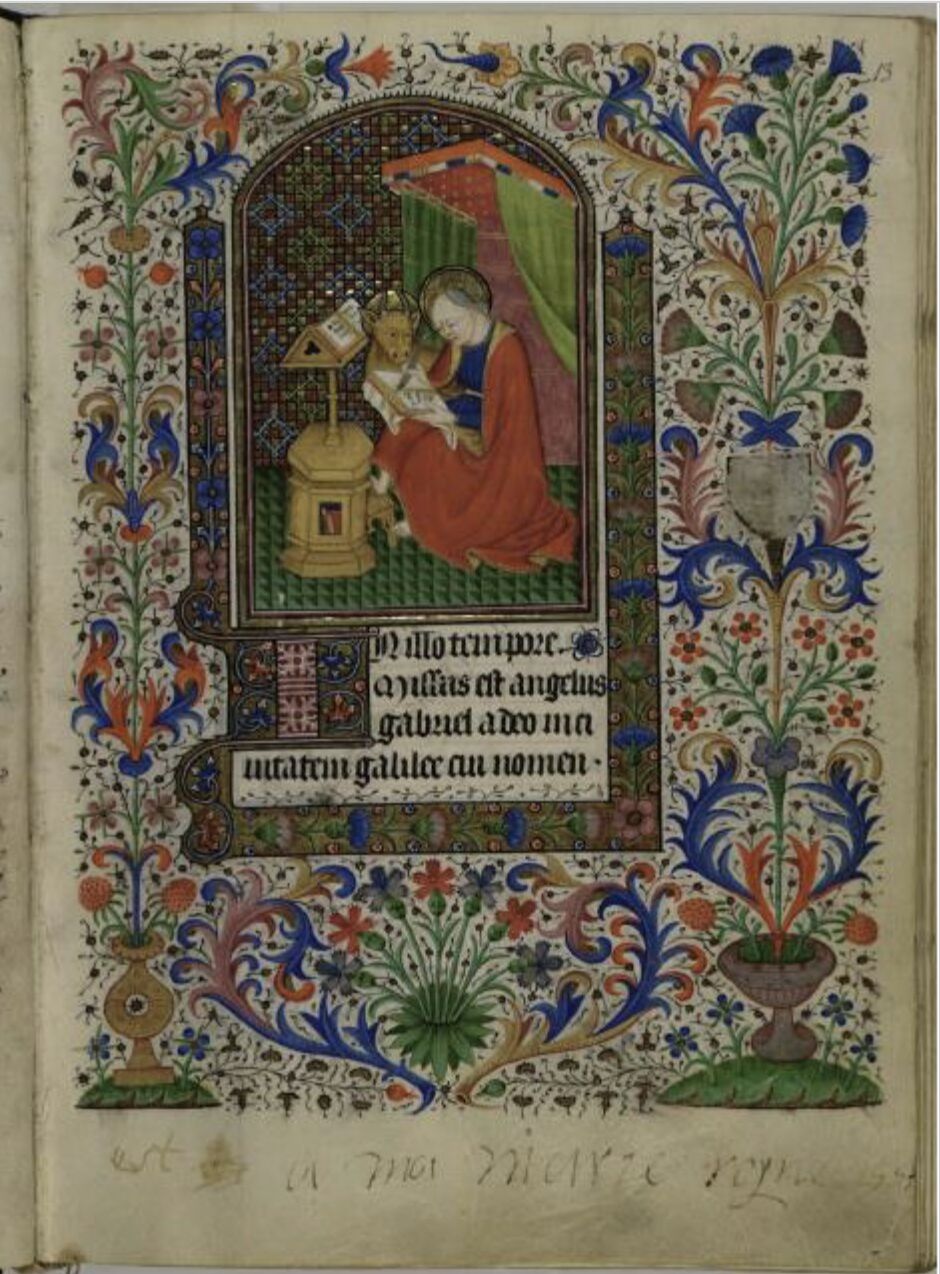 13
IN illo tempore.
Missus est angelus
gabriel a deo in ci
uitatem galilee cui nomen
est a moi pierre